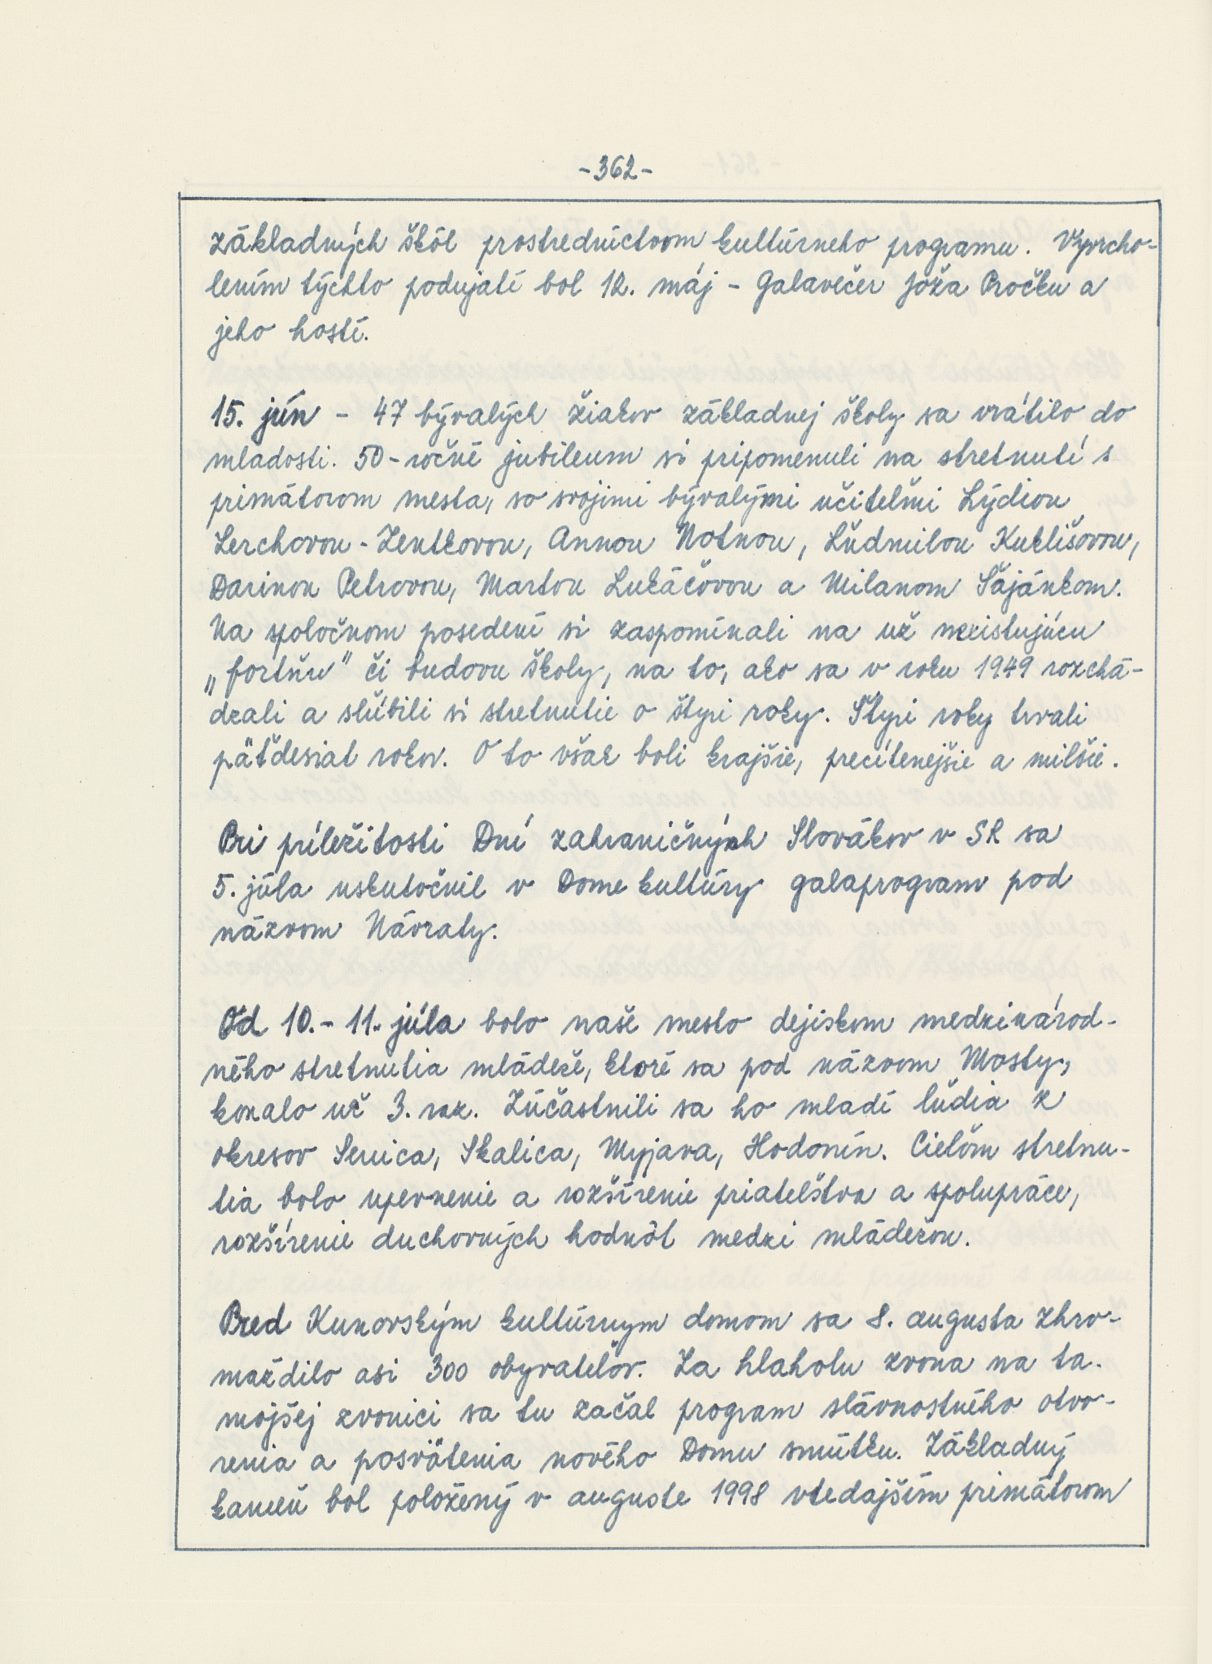 -362-
základných škôl prostredníctvom kultúrneho programu. Vyvrcho-
lením týchto podujatí bol 12. máj - Galavečer Joža Pročku a
jeho hostí.
15. jún - 47 bývalých žiakov základnej školy sa vrátilo do
mladosti. 50-ročné jubileum si pripomenuli na stretnutí s
primátorom mesta, so svojimi bývalými učiteľmi Lýdiou
Lerchovou - Zentkovou, Annou Notnou, Ľudmilou Kuklišovou,
Darinou Petrovou, Martou Lukáčovou a Milanom Šajánkom.
Na spoločnom posedení si zaspomínali na už neexistujúcu
„fortňu" či budovu školy, na to, ako sa v roku 1949 rozchá-
dzali a sľúbili si stretnutie o štyri roky. Štyri roky trvali
päťdesiat rokov. O to však boli krajšie, precítenejšie a milšie.
Pri príležitosti Dní zahraničných Slovákov v SR sa
5. júla uskutočnil v Dome kultúry galaprogram pod
názvom Návraty.
Od 10. - 11. júla bolo naše mesto dejiskom medzinárod-
ného stretnutia mládeže, ktoré sa pod názvom Mosty,
konalo už 3. raz. Zúčastnili sa ho mladí ľudia z
okresov Senica, Skalica, Myjava, Hodonín. Cieľom stretnu-
tia bolo upevnenie a rozšírenie priateľstva a spolupráce,
rozšírenie duchovných hodnôt medzi mládežou.
Pred Kunovským kultúrnym domom sa 8. augusta zhro-
maždilo asi 300 obyvateľov. Za hlaholu zvona na ta-
mojšej zvonici sa tu začal program slávnostného otvo-
renia a posvätenia nového Domu smútku. Základný
kameň bol položený v auguste 1998 vtedajším primátorom